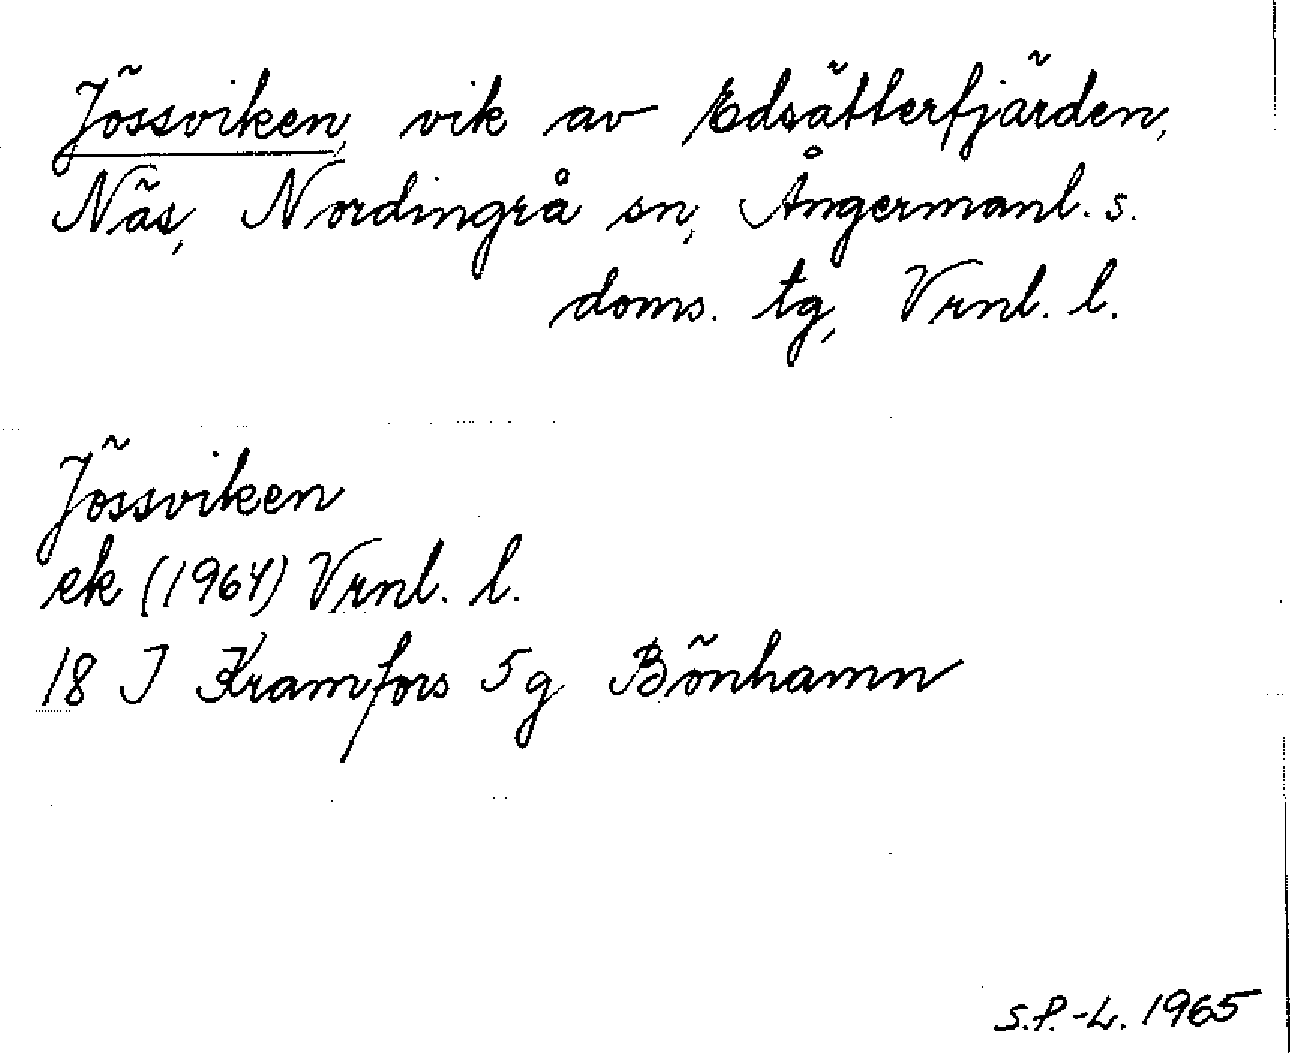 Jössviken, vik av Edsätterfjärden,
Näs, Nordingrå sn, Ångermanl. s.
doms. tg, Vrnl. l.
Jössviken
ek (1964) Vrnl. l.
18 I Kramfors 5g Bönhamn
S.P.-L. 1965